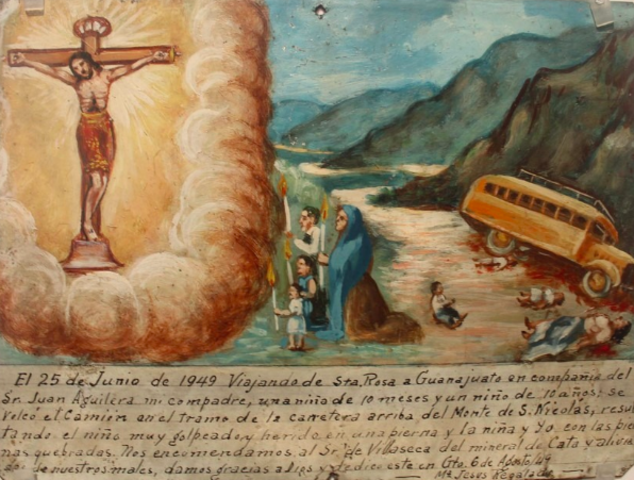 El 25 de Junio de 1949 Viajando de Sta, Rosa a Guanajuato en compañia del
Sr. Juan Aguilera mi compadre, una niña de 10 meses y un niño de 10 años; se
volcó el Camión en el tramo de la carretera arriba del Monte de S. Nicolas, resul
tando el niño muy golpeado, y herido en una pierna y la niña y Yo con las pier
nas quebradas. Nos encomendamos al Sr. de Villaseca del mineral de Cata y alivia
dos de nuestros males, damos gracias a Dios y dedico este en Gto. 6 de Agosto/49
Ma. Jesus Regalado